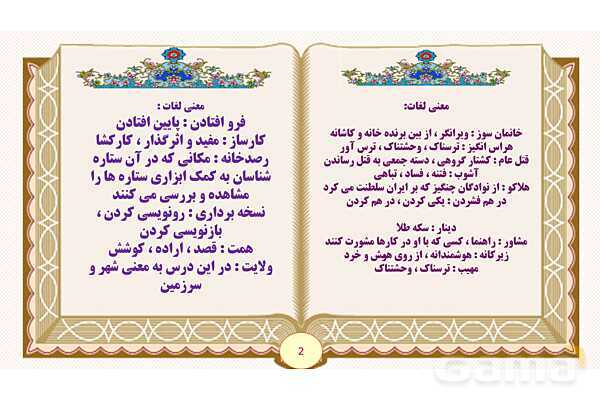 معنی لغات:
خانمان سوز : ویرانگر ، از بین برنده خانه و کاشانه
هراس انگیز : ترسناک ، وحشتناک ، ترس آور
قتل عام : کشتار گروهی ، دسته جمعی به قتل رساندن
آشوب : فتنه ، فساد ، تباهی
هلاکو : از نوادگان چنگیز که بر ایران سلطنت می کرد
در هم فشردن : یکی کردن ، در هم کردن
دینار : سکه طلا
مشاور : راهنما ، کسی که با او در کارها مشورت کنند
زیرکانه : هوشمندانه ، از روی هوش و خرد
مهیب : ترسناک ، وحشتناک
معنی لغات :
فرو افتادن : پایین افتادن
کارساز : مفید و اثرگذار ، کارگشا
رصدخانه : مکانی که در آن ستاره
شناسان به کمک ابزاری ستاره ها را
مشاهده و بررسی می کنند
نسخه برداری : رونویسی کردن ،
بازنویسی کردن
همت : قصد ، اراده ، کوشش
ولایت : در این درس به معنی شهر و
سرزمین
2
Gama